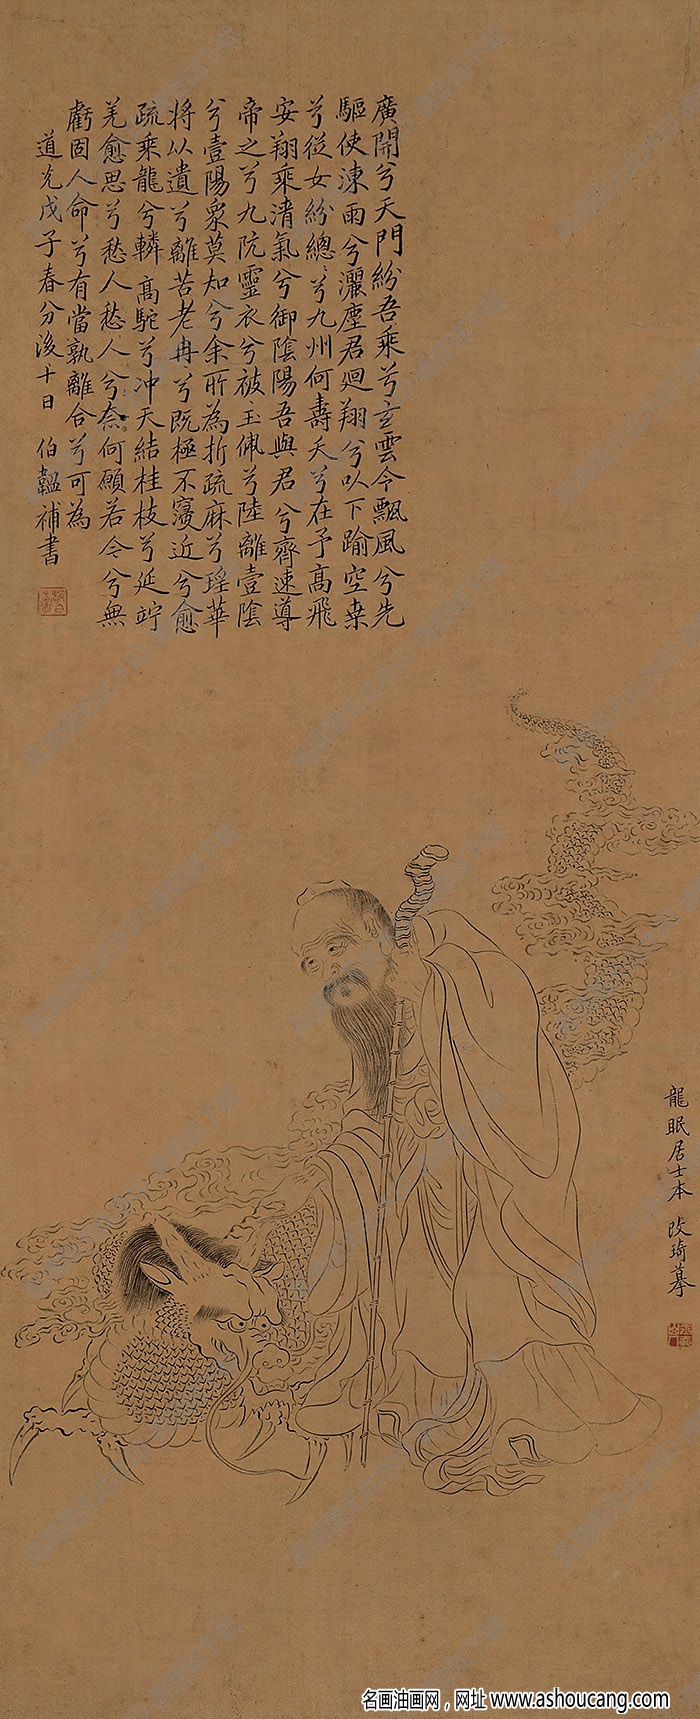 廣開兮天門紛吾乘兮玄雲令飄風兮先
驅使涷雨兮灑塵君迴翔兮以下踰空桒
兮從女紛總〻兮九州何壽夭兮在予高飛
安翔乘清氣兮御陰陽吾與君兮齊速導
帝之兮九阬靈衣兮被玉佩兮陸離壹陰
兮壹陽衆莫知兮余所為折疏麻兮瑤華
將以遺兮離苦老冉〻兮既極不寖近兮愈
疏乘龍兮轔〻高駝兮冲天結桂枝兮延竚
羌愈思兮愁人愁人兮奈何願若今兮無
虧固人命兮有當孰離合兮可為
道光戊子春分後十日 伯韞補書
龍眠居士本 改琦摹
名画油画网，网址 www.ashoucang.com